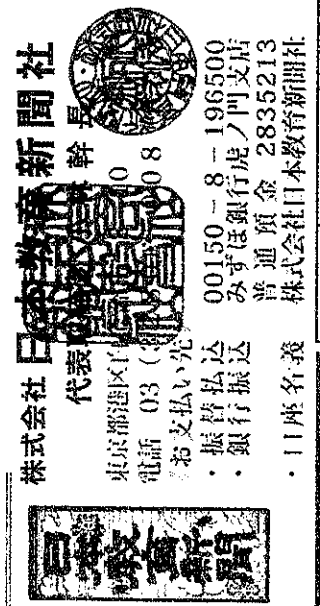 日本教育新聞
株式会社 日本教育新聞社
代表
幹長
東京都港区
電話 03 (
お支払い先
・振替払込 00150-8-196500
・銀行振込 みずほ銀行虎ノ門支店
普通預金 2835213
・口座名義 株式会社日本教育新聞社